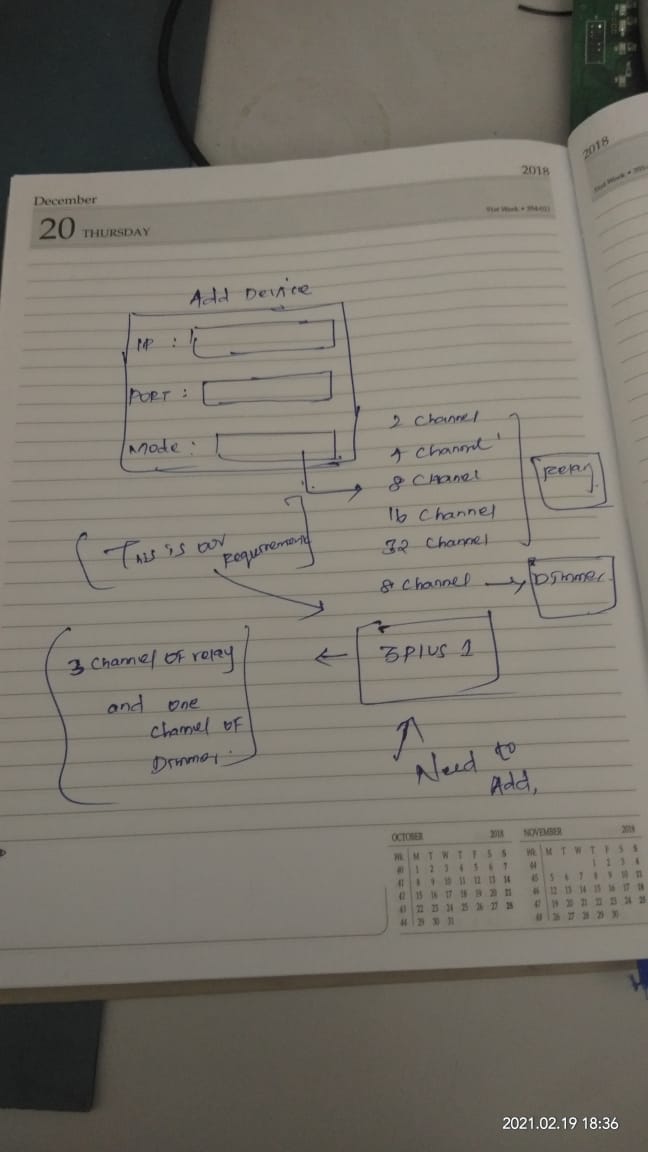 2018
December
20 THURSDAY
2018
Add Device
IP :
PORT :
Mode :
2 Channel
4 Channel
8 Chanel
16 Channel
32 Channel
Relay
8 Channel → Dimmer
This is our Requirement
3 PLUS 1
3 Channel OF relay
and one
Channel OF
Dimmer.
Need to
Add,
OCTOBER 2018
Wk M T W T F S S
40 1 2 3 4 5 6 7
41 8 9 10 11 12 13 14
42 15 16 17 18 19 20 21
43 22 23 24 25 26 27 28
44 29 30 31
NOVEMBER 2018
Wk M T W T F S S
44 1 2 3 4
45 5 6 7 8 9 10 11
46 12 13 14 15 16 17 18
47 19 20 21 22 23 24 25
48 26 27 28 29 30
2021.02.19 18:36